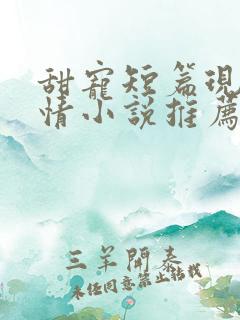 甜寵短篇現
情小說推薦
三羊開泰
未經同意禁止轉載